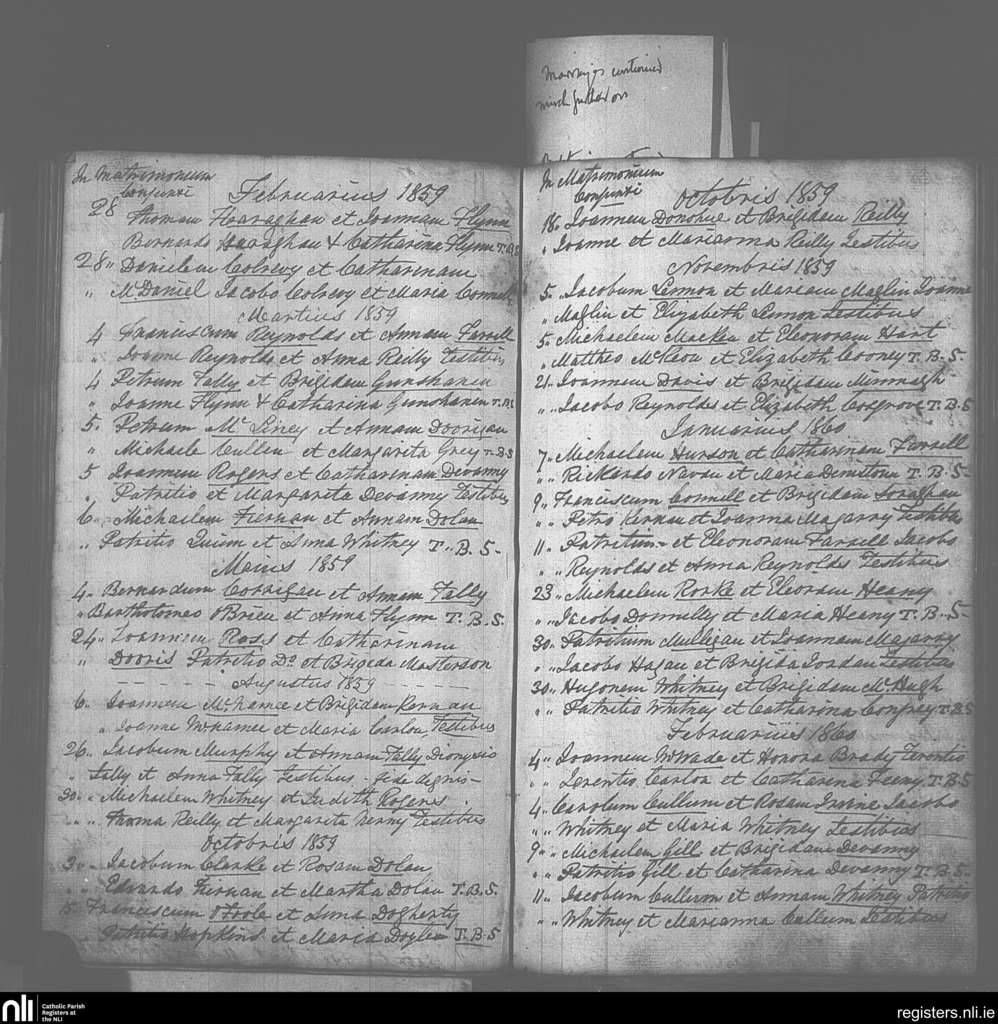 Marriages continued
much further on
In Matrimonium
Conjunxi
Februarius 1859
28 Thomam Haraghan et Joannam Flynn
Bernardo Haraghan & Catharina Flynn T.B.S
28 " Danielem Colrevy et Catharinam
" McDaniel Jacobo Colrevy et Maria
Martius 1859
4 Franciscum Reynolds et Annam Farrell
" Joanne Reynolds et Anna Reilly Testibus
4 Petrum Tally et Brigidam Gunshanen
" Joanne Flynn & Catharina Gunshanen T.B.S
5. Petrum Mc Liney et Annam Doorigan
" Michaele Cullen et Margarita Grey T-B-S
5 Joannem Rogers et Catharinam Devanny
" Patritio et Margarita Devanny Testibus
6 " Michaelem Tiernan et Annam Dolan
" Patritio Quinn et Anna Whitney T. B. S-
Maius 1859
4 " Bernardum Corrigan et Annam Tally
" Bartholomeo OBrien et Anna Flynn T. B. S.
24 " Joannem Ross et Catharinam
" Dooris Patritio Do. et Brigida Masterson
Augustus 1859
6 " Joannem McNamee et Brigidam Kernan
" Joanne McNamee et Maria Carlon Testibus
26 " Jacobum Murphy et Annam Tally Dionysio
" Tally et Anna Tally Testibus - fide dignis -
30 " Michaelem Whitney et Judith Rogers
" " Thoma Reilly et Margarita Testibus
Octobris 1859
3 " " Jacobum Clarke et Rosam Dolan
" " Edvardo Kernan et Martha Dolan T.B.S.
15 " Franciscum OToole et Anna Dogherty
" Patritio Hopkins et Maria T.B.S
In Matrimonium
Conjunxi
Octobris 1859
18 " Joannem Donohue et Brigidam Reilly
" Joanne et Marianna Reilly Testibus
Novembris 1859
5 " Jacobum Lennon et Mareani Maglin Joanne
" Maglin et Elizabeth Lennon Testibus
5 " Michaelem Macken et Eleonoram Hart
" Mattheo McKeon et Elizabeth Cooney T. B-S-
21 " Joannem Davis et Brigidam Mimnagh
" " Jacobo Reynolds et Elizabeth Cosgrove T. B. S
Januarius 1860
7 " Michaelem Hurson et Catharinam Farrell
" " Rickardo Navan et Maria T. B-S-
9 " Franciscum Connell et Brigidam Soraghan
" " Petro Kernan et Joanna Magarry Testibus
11 " Patritum - et Eleonoram Farrell Jacobo
" " Reynolds et Anna Reynolds Testibus
23 " Michaelem Rorke et Eleoram Heany
" " Jacobo Donnelly et Maria Heany T. B. S
30 " Patritium Mulligan et Joannam Magarry
" " Jacobo Hagan et Brigida Jordan Testibus
30 " Hugonem Whitney et Brigidam McHugh
" " Patritio Whitney et Catharina Comfrey T. B. S
Februarius 1860
4 " Joannem McWade et Honora Brady Terentio
" " Terentio Carlon et Catharina Feeny T. B-S
4 " Carolum Cullum et Rosam Irvine Jacobo
" " Whitney et Maria Whitney Testibus
9 " " Michaelem Gill et Brigidam Devanny
" " Patritio Gill et Catharina Devanny T. B-S.
11 " Jacobum Cullum et Annam Whitney Patritio
" " Whitney et Marianna Cullum Testibus
nli
Catholic Parish
Registers at
the NLI
registers.nli.ie